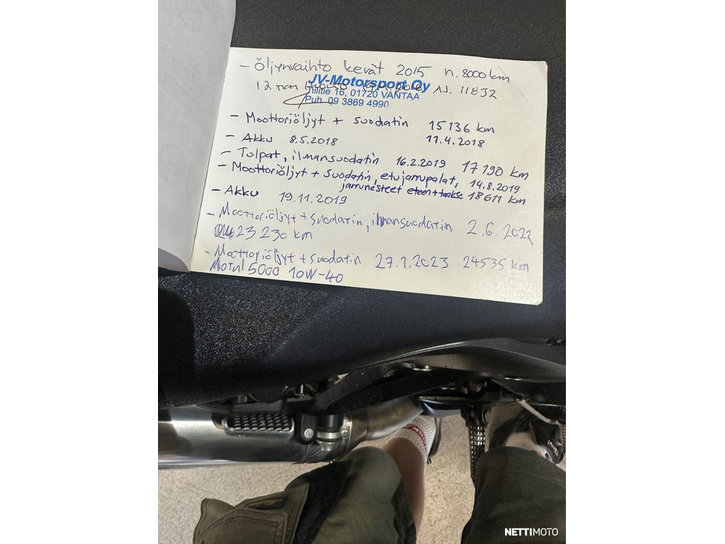 - Öljynvaihto kevät 2015 n. 8000 km
JV-Motorsport Oy
12 N. 11832
Tiilitie 16, 01720 VANTAA
Puh. 09 3869 4990
- Moottoriöljyt + suodatin 15136 km
11.4.2018
- Akku 8.5.2018
- Tulpat, ilmansuodatin 16.2.2019 17190 km
- Moottoriöljyt + suodatin, etujarrupalat, 14.8.2019
jarrunesteet eteen + taakse 18611 km
- Akku 19.11.2019
- Moottoriöljyt + suodatin, ilmansuodatin 2.6.2022
23230 km
- Moottoriöljyt + suodatin 27.7.2023 24535 km
Motul 5000 10W-40
NETTIMOTO